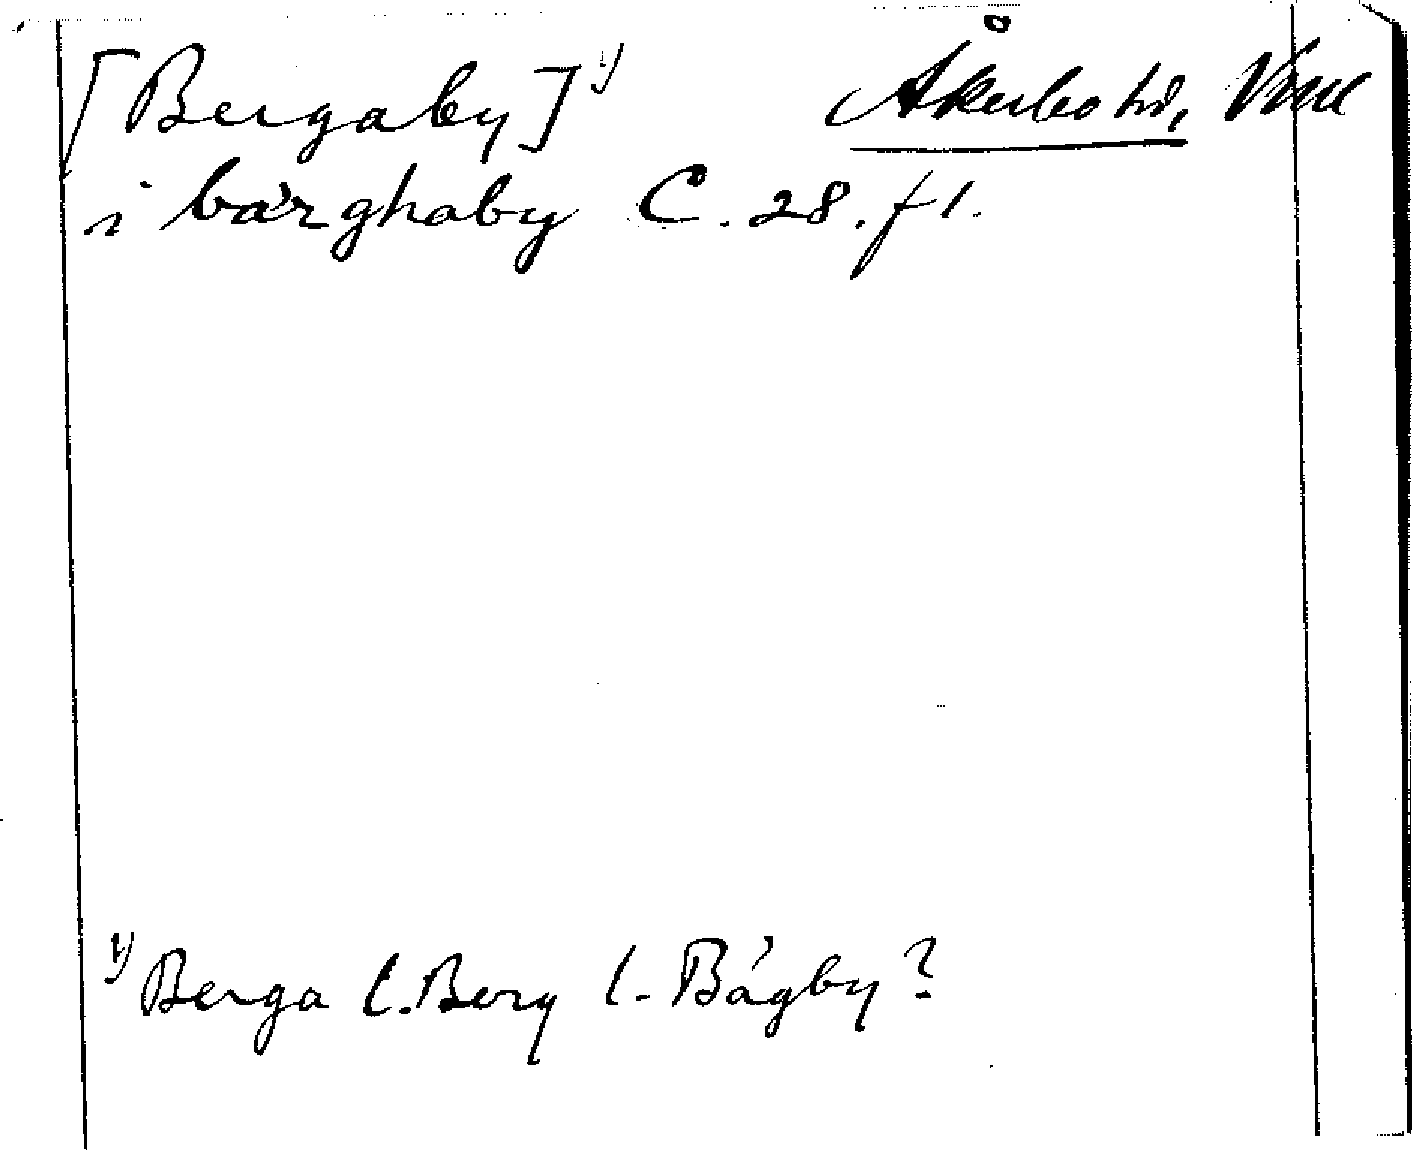 [Bergaby] 1) Åkerbo hd, Vml
i bärghaby C. 28. f 1.
1) Berga l. Berg l. Bågby?